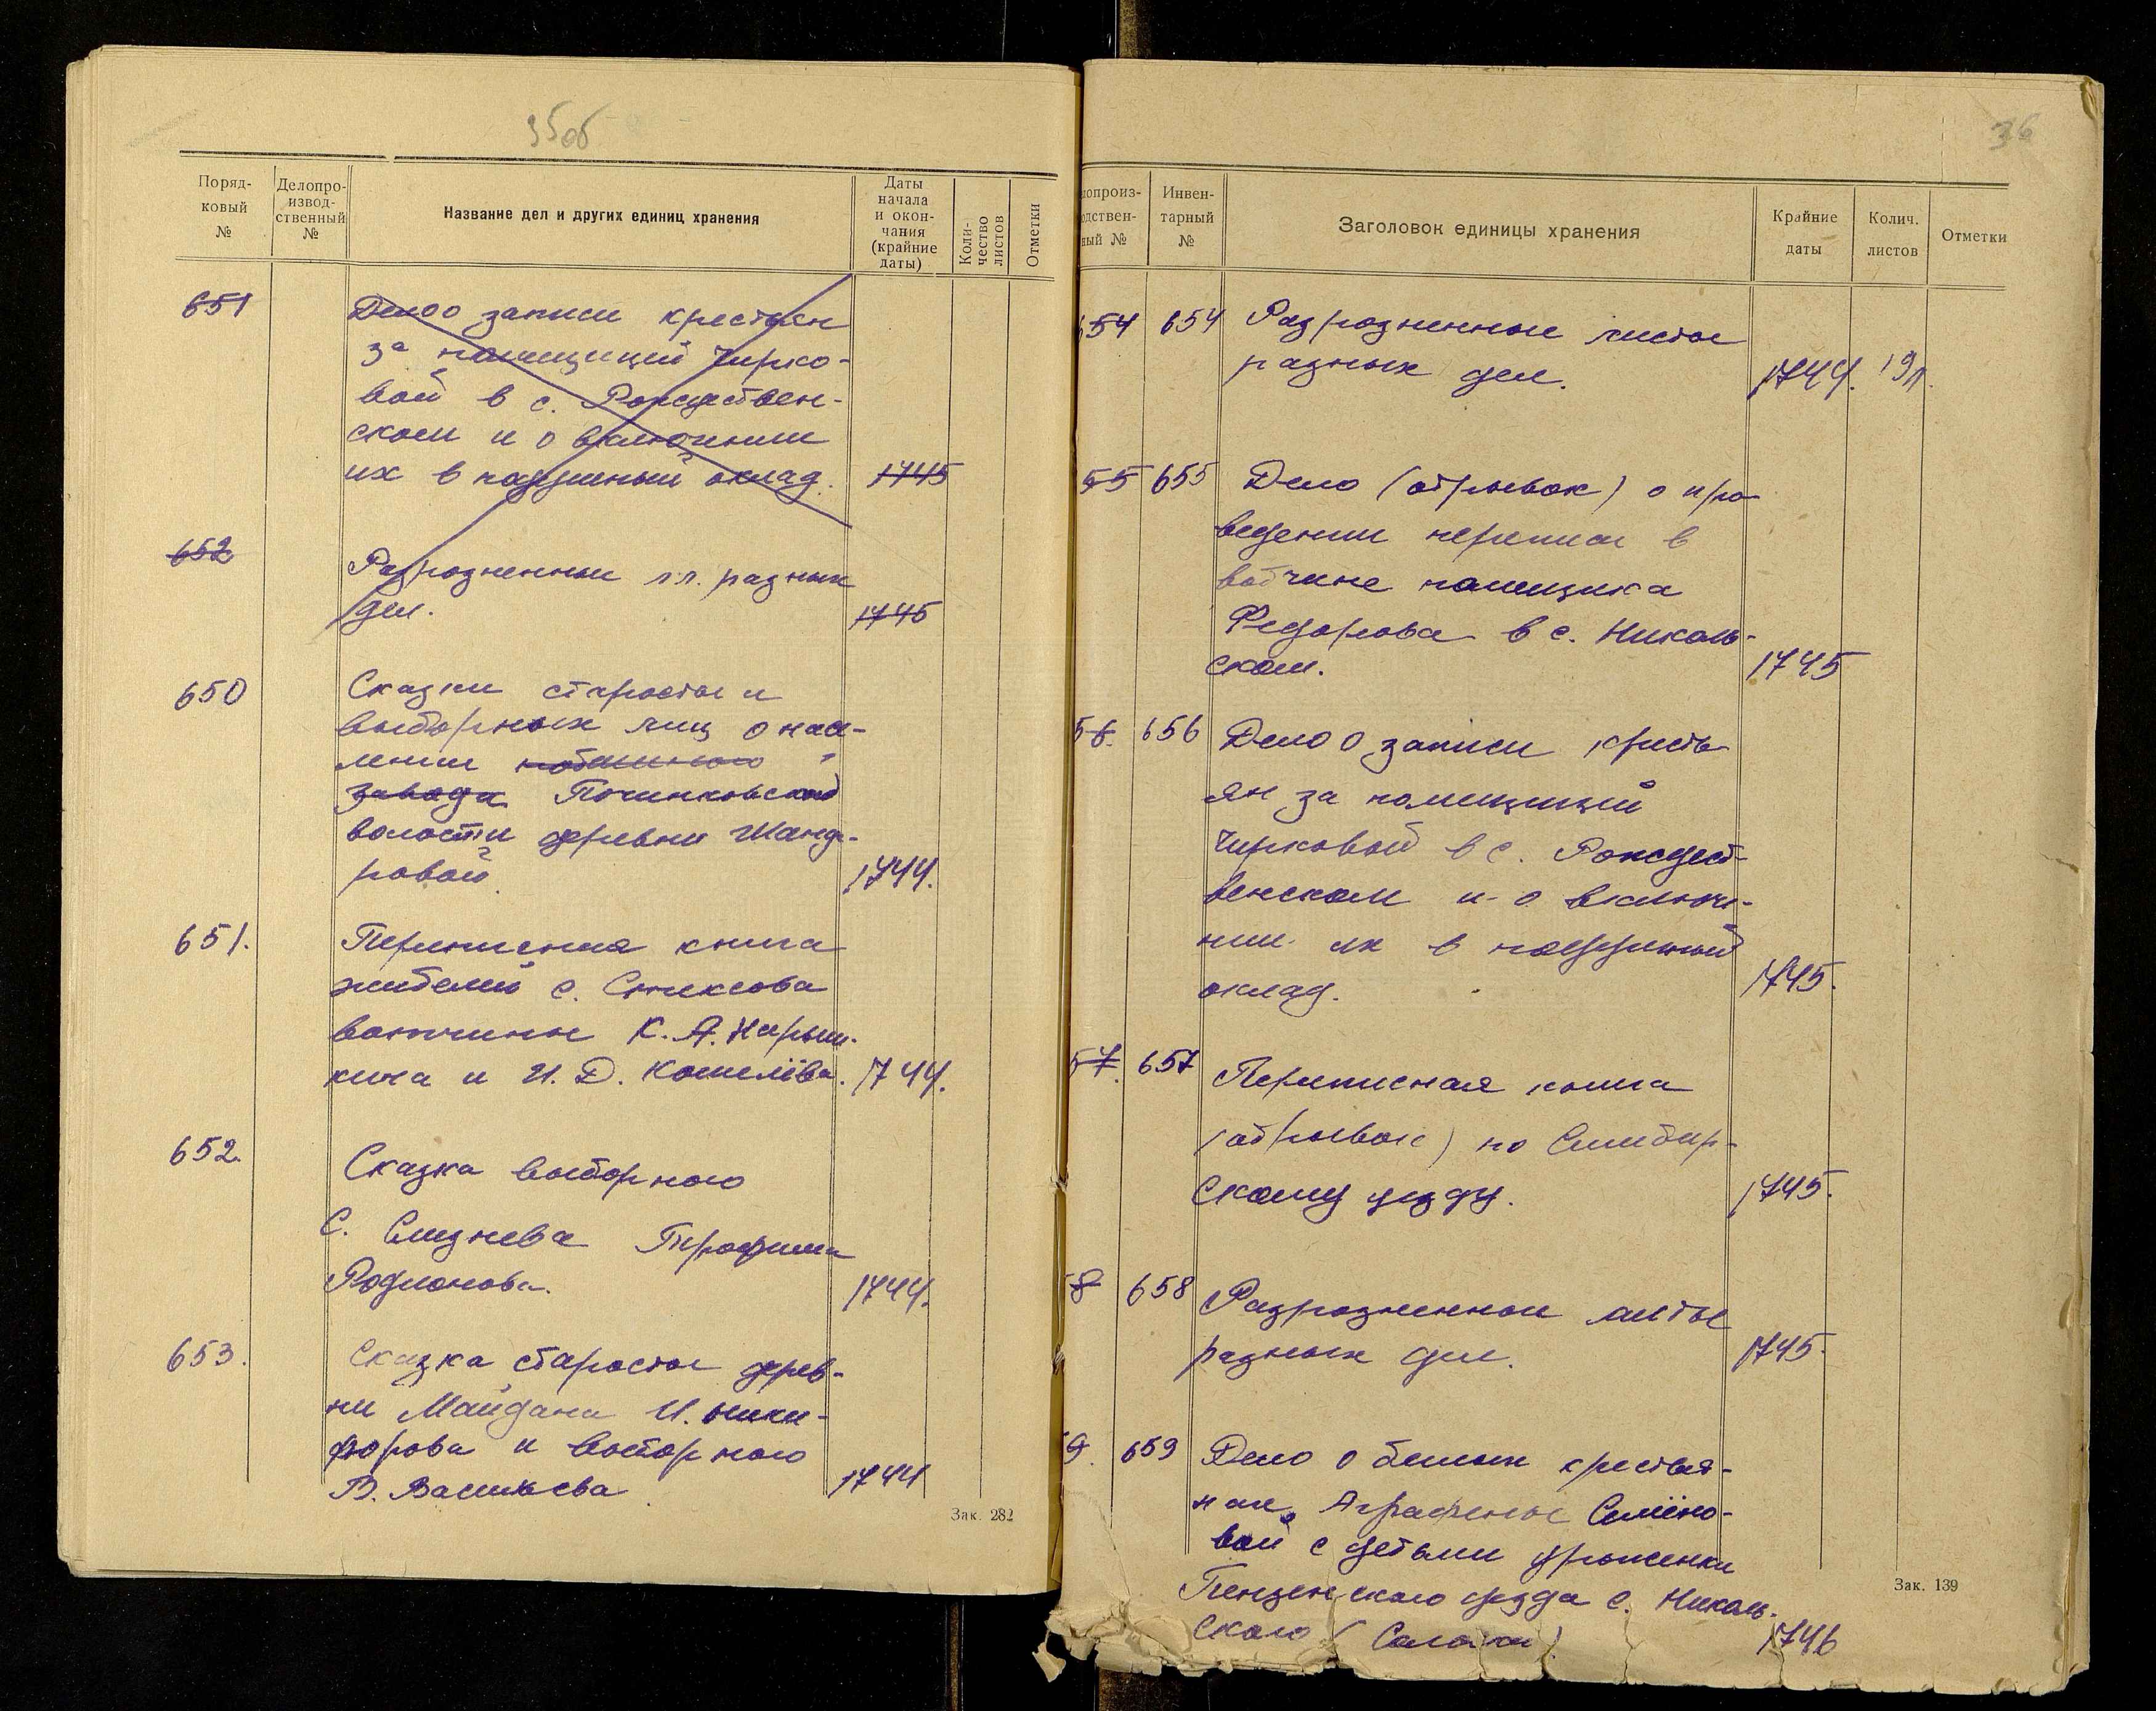 35об
Поряд-
ковый
№
Делопро-
извод-
ственный
№
Название дел и других единиц хранения
Даты
начала
и окон-
чания
(крайние
даты)
Коли-
чество
листов
Отметки
651 Дело о записи крестьян
за помещицей Чирко-
вой в с. Рождествен-
ском и о включении
их в подушный оклад. 1745
652 Разрозненные л.л. разных
дел. 1745
650 Сказки старосты и
выборных лиц о насе-
лении
завода Починковской
волости деревни Шанд-
ровой 1744.
651. Переписная книга
жителей с.
вотчины К. А. Нарыш-
кина и И. Д. Кошелёва. 1744.
652. Сказка выборного
с. Слизнева
Родионова. 1744.
653. Сказка старосты дерев-
ни Майдана И. Ники-
форова и выборного
В. Васильева 1744
Зак. 282
36
лопроиз-
одствен-
ный №
Инвен-
тарный
№
Заголовок единицы хранения
Крайние
даты
Колич.
листов
Отметки
654 654 Разрозненные листы
разных дел. 1744. 19л.
55 655 Дело (отрывок) о про-
ведении переписи в
вотчине помещика
Федорова в с. Николь-
ском. 1745
56. 656 Дело о записи кресть-
ян за помещицей
Чирковой в с. Рождест-
венском и о включе-
нии их в подушный
оклад. 1745.
57. 657 Переписная книга
(отрывок) по Симбир-
скому уезду. 1745.
58 658 Разрозненные листы
разных дел. 1745.
9. 659 Дело о беглых крестья-
нах Аграфены Семёно-
вой с детьми уроженки
Пензенского уезда с. Николь-
ского 1746
Зак. 139